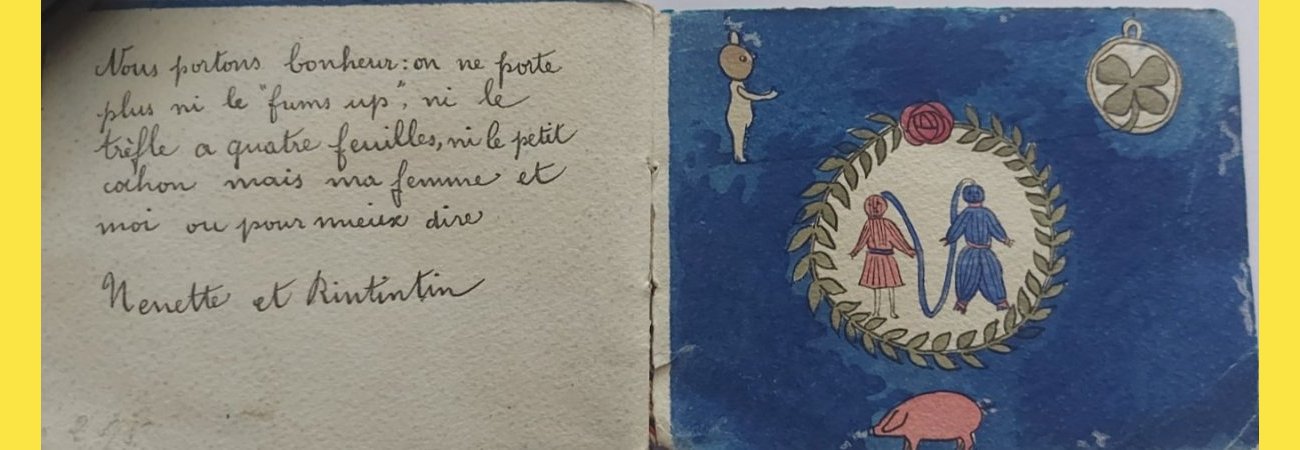 Nous portons bonheur: on ne porte
plus ni le "fums up", ni le
trèfle a quatre feuilles, ni le petit
cochon mais ma femme et
moi ou pour mieux dire
Nenette et Rintintin